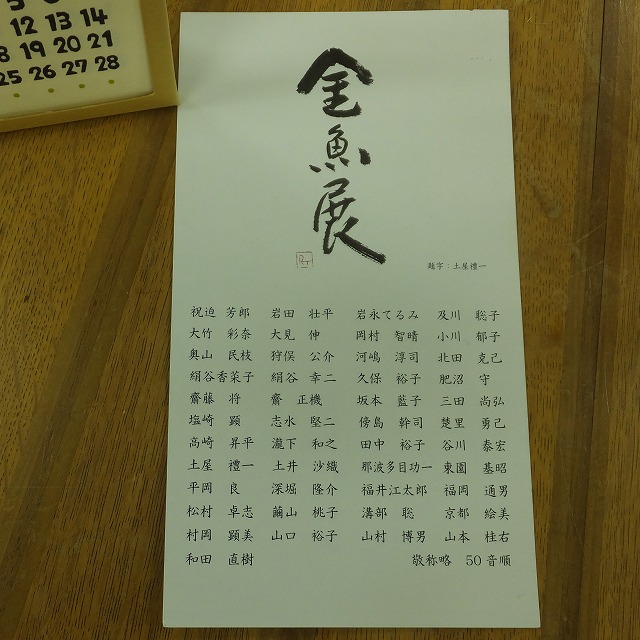 12 13 14
18 19 20 21
25 26 27 28
金魚展
題字：土屋禮一
祝迫 芳郎 岩田 壮平 岩永てるみ 及川 聡子
大竹 彩奈 大見 伸 岡村 智晴 小川 郁子
奥山 民枝 狩俣 公介 河嶋 淳司 北田 克己
絹谷香菜子 絹谷 幸二 久保 裕子 肥沼 守
齋藤 将 齋 正機 坂本 藍子 三田 尚弘
塩崎 顕 志水 堅二 傍島 幹司 楚里 勇己
高崎 昇平 瀧下 和之 田中 裕子 谷川 泰宏
土屋 禮一 土井 沙織 那波多目功一 東園 基昭
平岡 良 深堀 隆介 福井江太郎 福岡 通男
松村 卓志 繭山 桃子 溝部 聡 京都 絵美
村岡 顕美 山口 裕子 山村 博男 山本 桂右
和田 直樹 敬称略 50音順